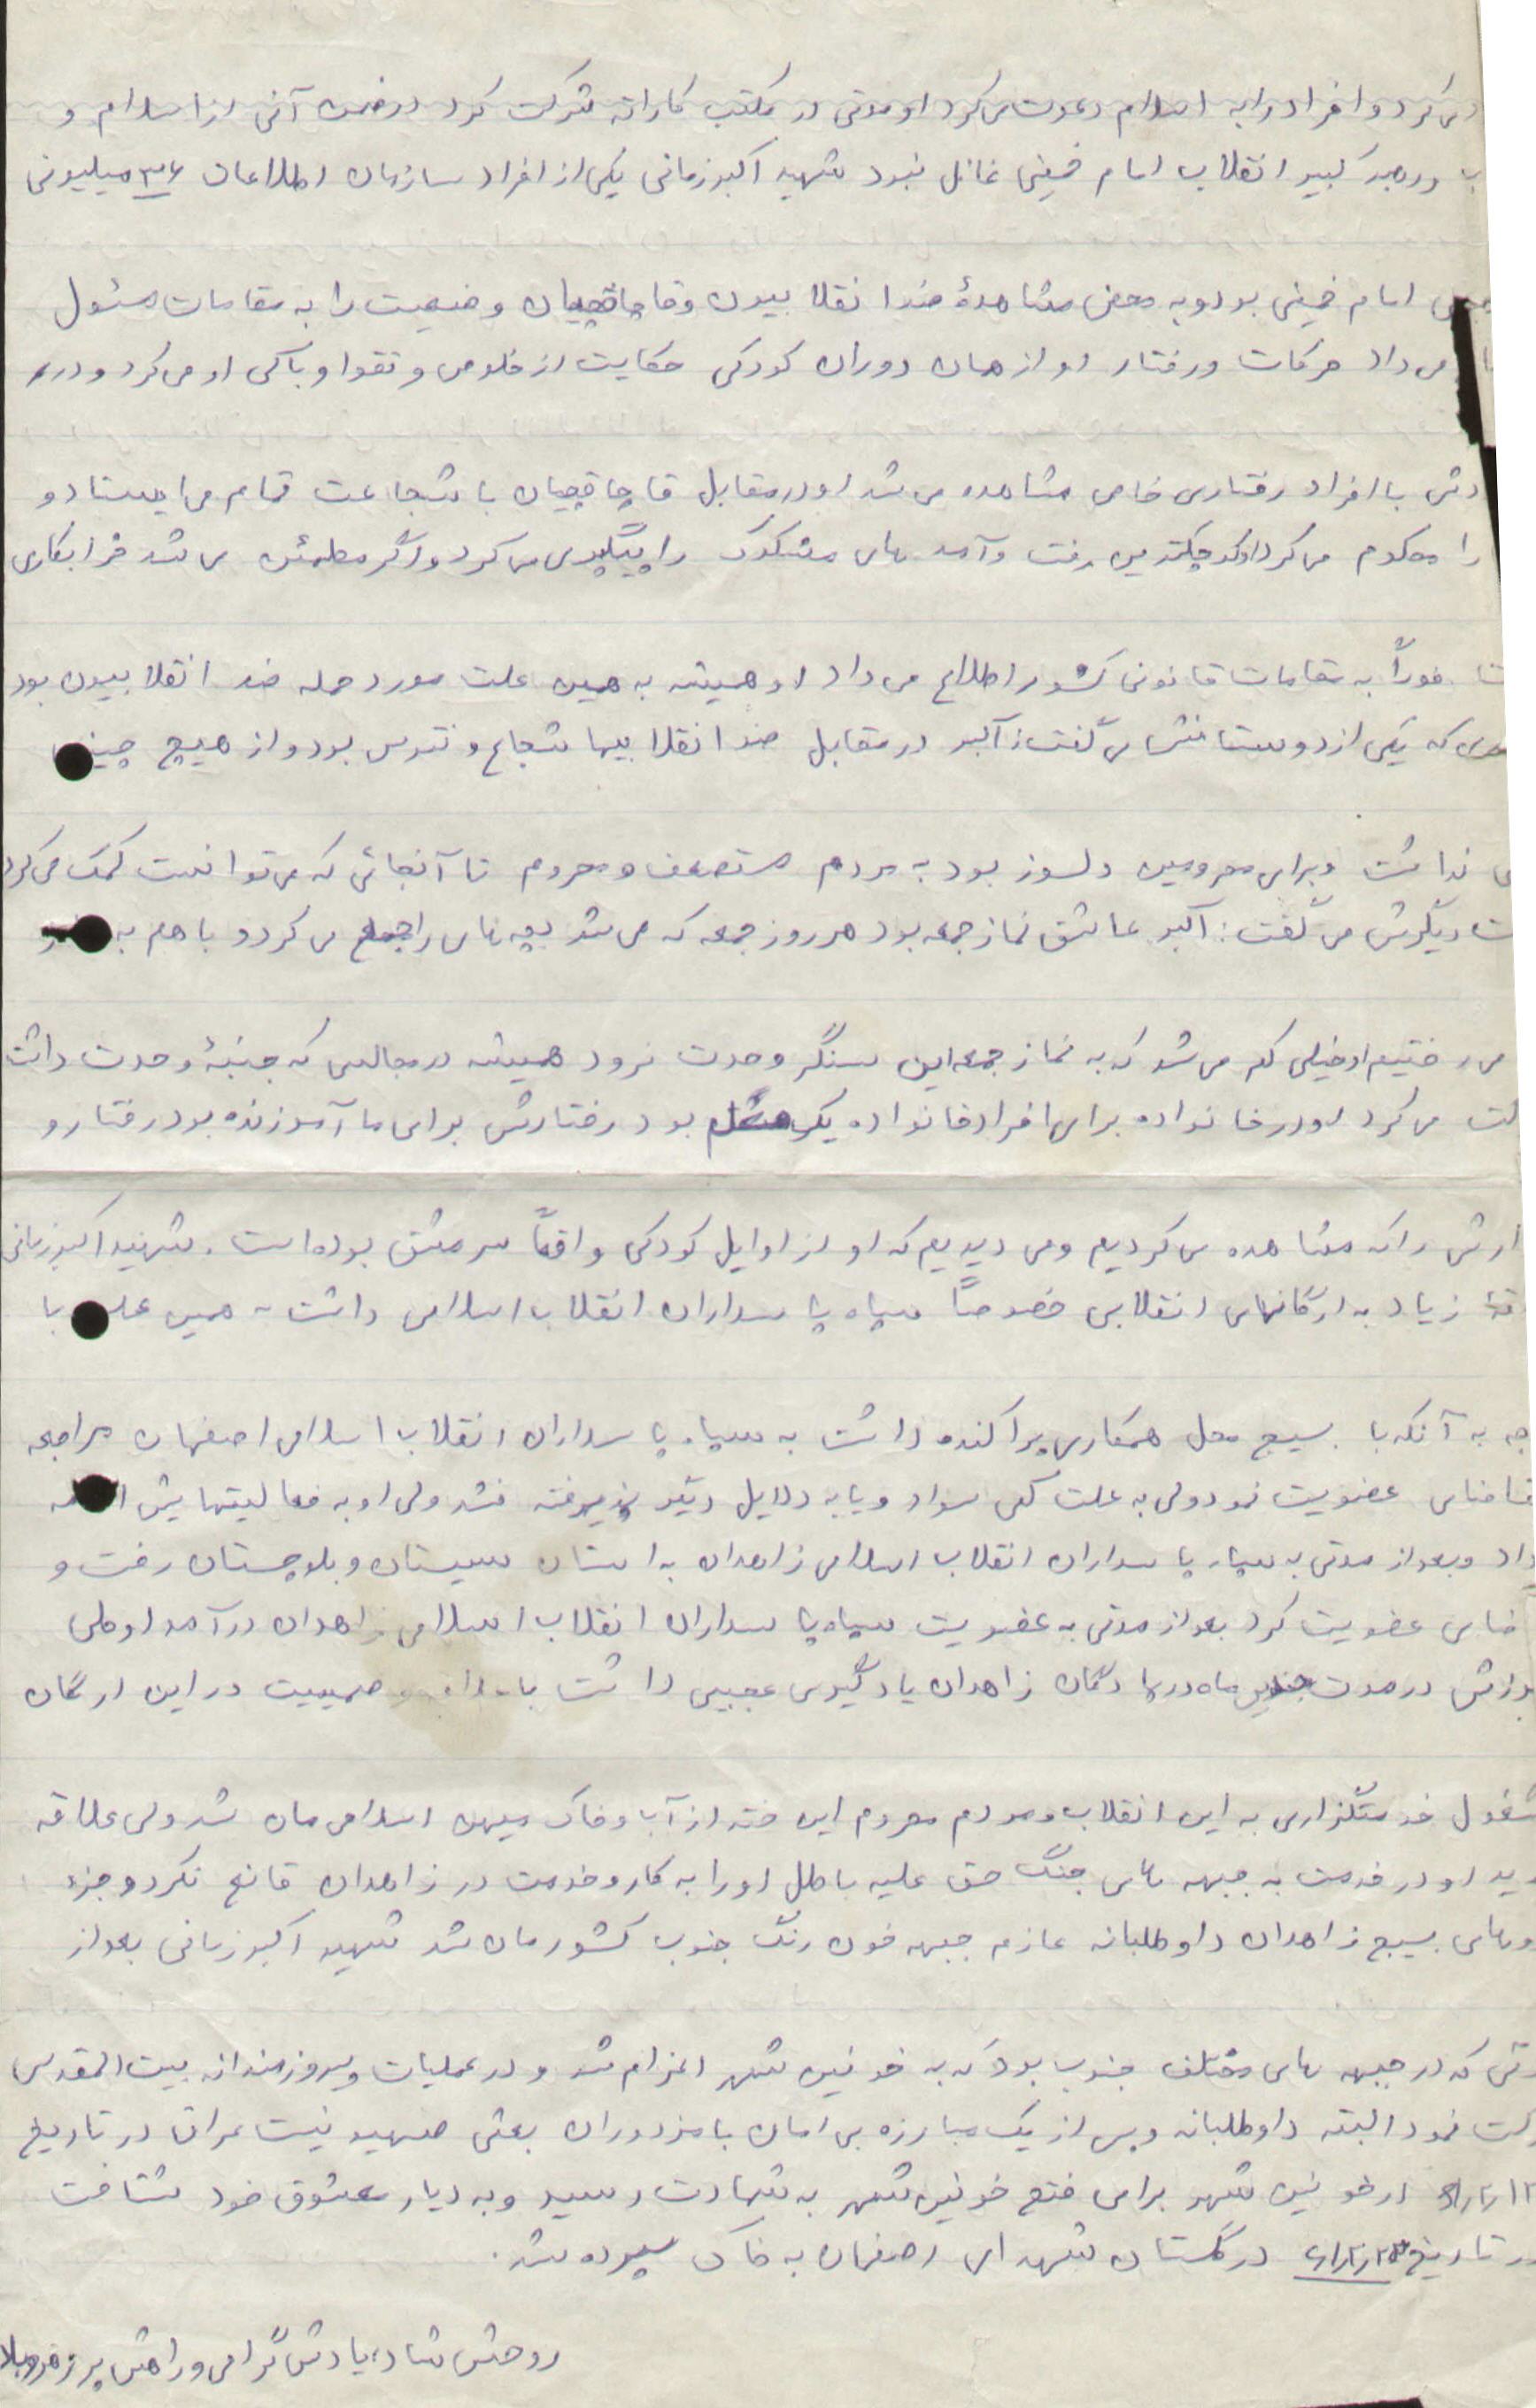 می کرد و افراد را به اسلام دعوت می کرد او مدتی در مکتب کاراته شرکت کرد در ضمن آنی از اسلام و
ب و رهبر کبیر انقلاب امام خمینی غافل نبود شهید اکبر زمانی یکی از افراد سازمان اطلاعات ۳۶ میلیونی
امام خمینی بود و به محض مشاهدهٔ ضد انقلابیون و قاچاقچیان وضعیت را به مقامات مسئول
می داد حرکات و رفتار او از همان دوران کودکی حکایت از خلوص و تقوا و پاکی او می کرد و در
دش با افراد رفتاری خاص مشاهده می شد او در مقابل قاچاقچیان با شجاعت تمام می ایستاد و
را محکوم می کرد او کوچکترین رفت و آمد های مشکوک را پیگیری می کرد و اگر مطمئن می شد خرابکاری
فوراً به مقامات قانونی کشور اطلاع می داد او همیشه به همین علت مورد حمله ضد انقلابیون بود
که یکی از دوستانش می گفت: اکبر در مقابل ضد انقلابیها شجاع و نترس بود و از هیچ چیز
نداشت و برای محرومین دلسوز بود به مردم مستضعف و محروم تا آنجائی که می توانست کمک می کرد
ت دیگرش می گفت: اکبر عاشق نماز جمعه بود هر روز جمعه که می شد بچه های را جمع می کرد و با هم به
می رفتیم او خیلی کم می شد که به نماز جمعه این سنگر وحدت نرود همیشه در مجالسی که جنبهٔ وحدت داشت
کت می کرد او در خانواده برای افراد خانواده یک معلم بود رفتارش برای ما آموزنده بود رفتار و
ارش را که مشاهده می کردیم و می دیدیم که او از اوایل کودکی واقعاً سرمشق بوده است. شهید اکبر زمانی
زیاد به ارگانهای انقلابی خصوصاً سپاه پاسداران انقلاب اسلامی داشت به همین علت با
جه به آنکه با بسیج محل همکاری پراکنده داشت به سپاه پاسداران انقلاب اسلامی اصفهان مراجعه
قاضای عضویت نمود ولی به علت کمی سواد و یا به دلایل دیگر پذیرفته نشد ولی او به فعالیتهایش ادامه
داد و بعد از مدتی به سپاه پاسداران انقلاب اسلامی زاهدان به استان سیستان و بلوچستان رفت و
قاضای عضویت کرد بعد از مدتی به عضویت سپاه پاسداران انقلاب اسلامی زاهدان در آمد او طی
در مدت چندین ماه در پادگان زاهدان یادگیری عجیبی داشت با صمیمیت در این ارگان
شغول خدمتگزاری به این انقلاب و مردم محروم این خته از آب و خاک میهن اسلامی مان شد ولی علاقه
دید او در خدمت به جبهه های جنگ حق علیه باطل او را به کار و خدمت در زاهدان قانع نکرد و جزء
وهای بسیج زاهدان داوطلبانه عازم جبهه خون رنگ جنوب کشورمان شد شهید اکبر زمانی بعد از
دتی که در جبهه های مختلف جنوب بود که به خونین شهر اعزام شد و در عملیات پیروزمندانه بیت المقدس
رکت نمود البته داوطلبانه و پس از یک مبارزه بی امان با مزدوران بعثی صهیونیست عراق در تاریخ
در خونین شهر برای فتح خونین شهر به شهادت رسید و به دیار معشوق خود شتافت
در تاریخ در گلستان شهدای اصفهان به خاک سپرده شد.
روحش شاد، یادش گرامی و راهش پر رهرو باد